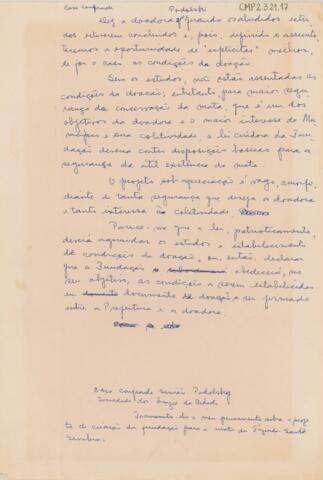 Caro confrade Podolski
CMP2.3.21.17
Diz a doadora: "Quando os aludidos estu-
dos estiverem concluidos e, pois, definido o assunto,
teremos a oportunidade de "explicitar" melhor,
se for o caso, as condições da doação.
Sem os estudos, não estão assentadas as
condições da doação; entretanto, para maior segu-
rança da conservação da mata, que é um dos
objetivos da doadora e o maior interesse do Mu-
nicipio e sua coletividade, a lei criadora da Fun-
dação deveria conter disposições basicas para a
segurança da útil existência da mata.
O projeto sob apreciação é vago, amorfo,
diante de tanta segurança que deseja a doadora
e tanto interessa à coletividade
Parece-me que a lei, patrioticamente,
deverá aguardar os estudos e estabelecimento
de condições de doação, ou, então, declarar
que a Fundação obedecerá, no
seu objetivo, as condições a serem estabelecidas
em documento de doação a ser firmado
entre a Prefeitura e a doadora.
Caro confrade Podolsky
Sociedade dos Amigos da Cidade
Transmito-lhe o meu pensamento sobre o proje-
to de criação da fundação para a mata da Fazenda Santa
Genebra: